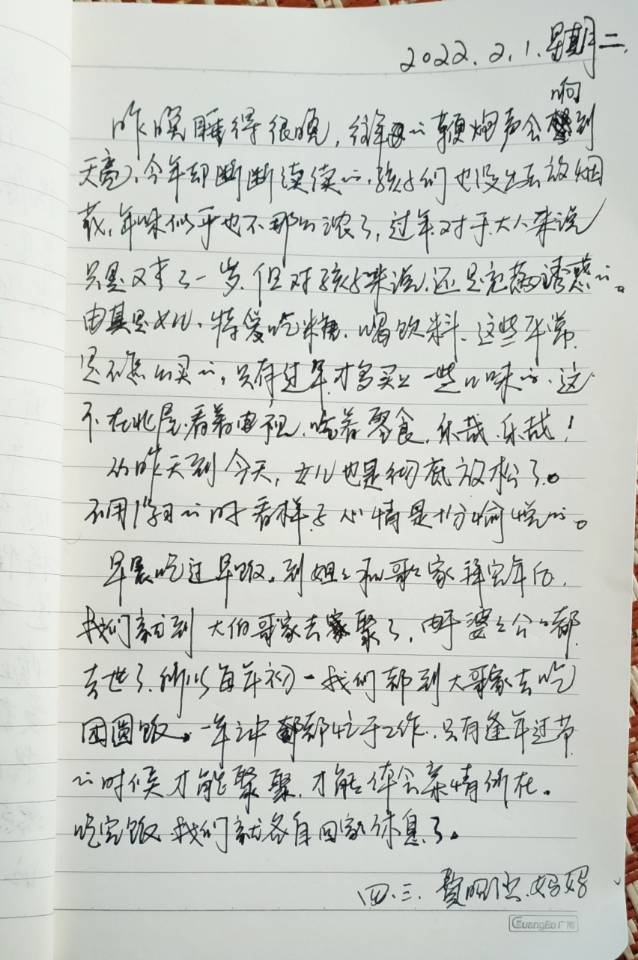 2022.2.1.星期二.
响
昨晚睡得很晚，往年的鞭炮声会到
天亮，今年却断断续续的，孩子们也没出去放烟
花，年味似乎也不那么浓了，过年对于大人来说
只是又老了一岁，但对孩子来说，还是充满诱惑的。
由其是女儿，特爱吃糖，喝饮料，这些平常
是不怎么买的，只有过年才多买上一些口味的，这
不在北屋看着电视，吃着零食，乐哉，乐哉！
从昨天到今天，女儿也是彻底放松了。
不用学习的时看样子心情是十分愉悦的。
早晨吃过早饭，到姐姐和哥家拜完年后，
我们就到大伯哥家去聚了，由于婆婆公公都
去世了，所以每年初一我们都到大哥家去吃
团圆饭。一年之中都忙于工作，只有逢年过节
的时候才能聚聚，才能体会亲情所在。
吃完饭我们就各自回家休息了。
四.三.妈妈
GuangBo广博